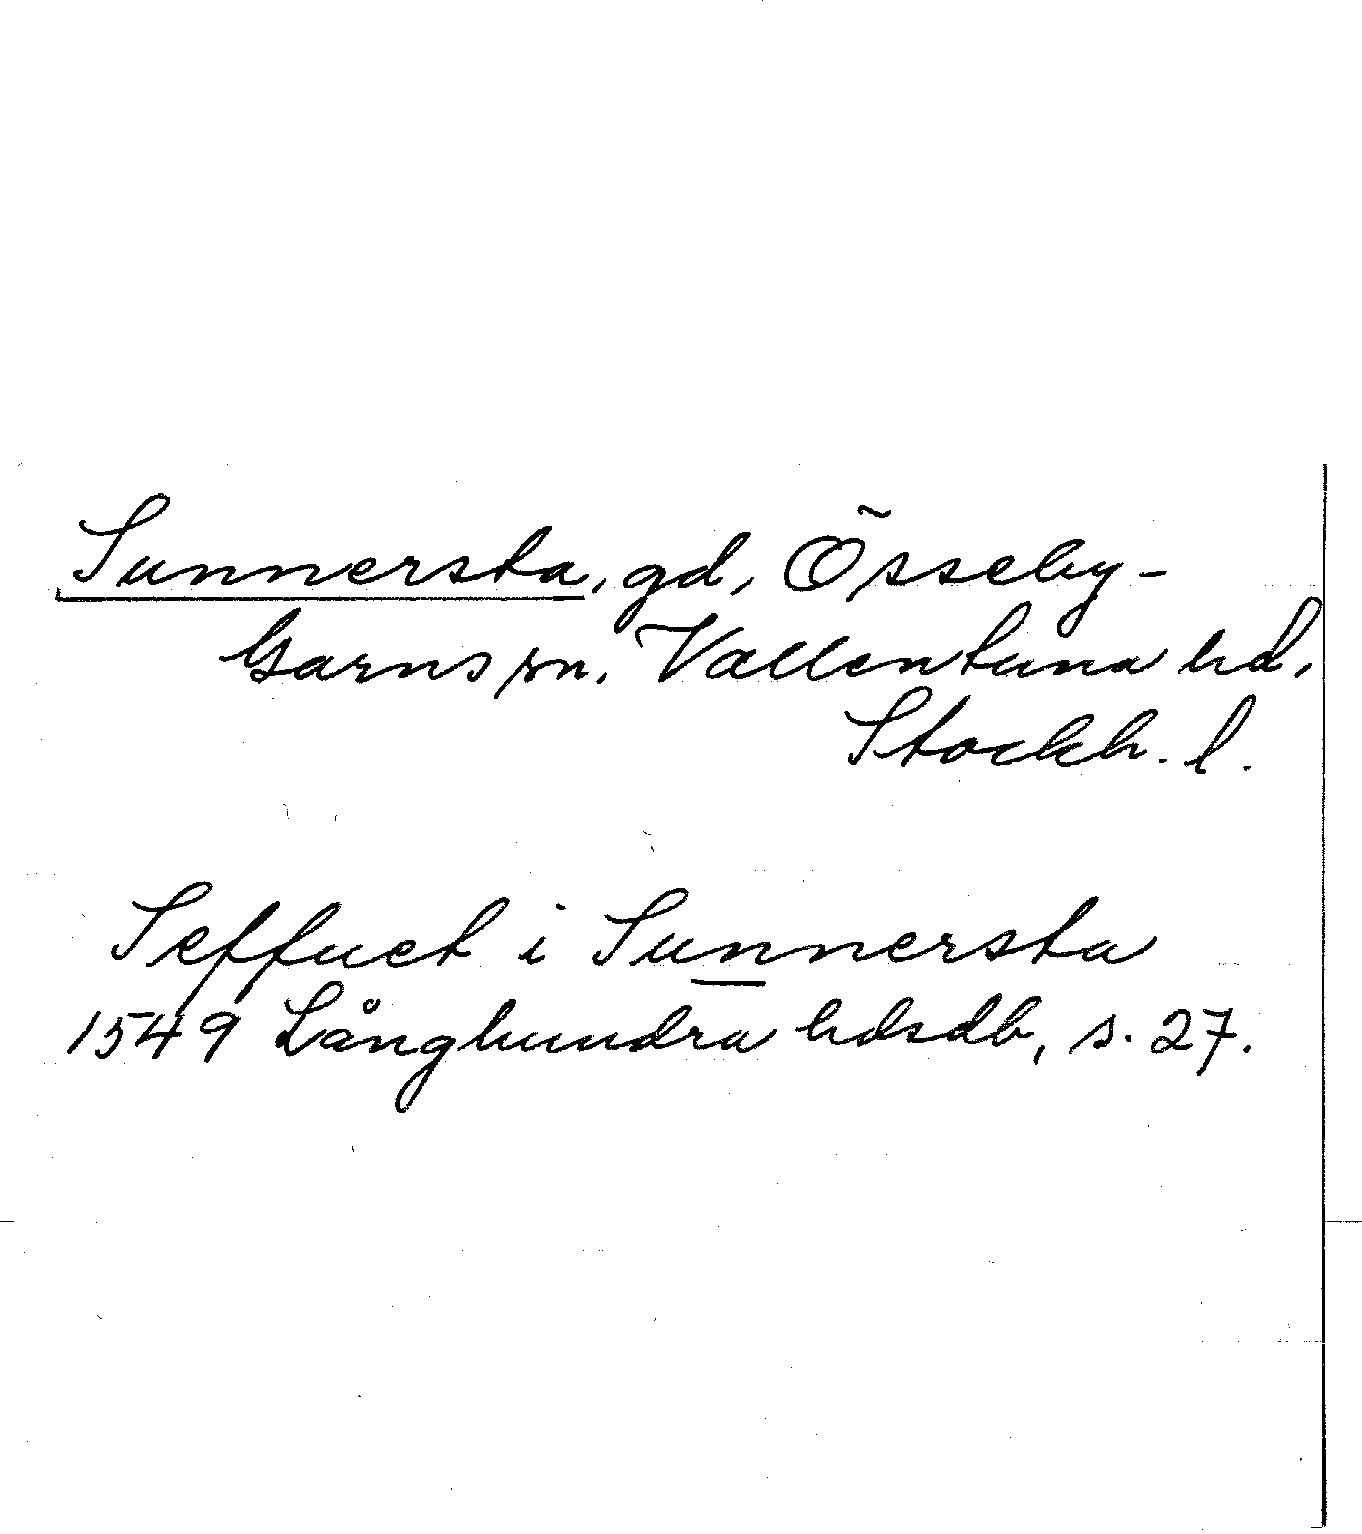 Sunnersta, gd, Össeby-
Garns sn. Vallentuna hd.
Stockh. l.
Seffuet i Sunnersta
1549 Långhundra hdsdb, s. 27.